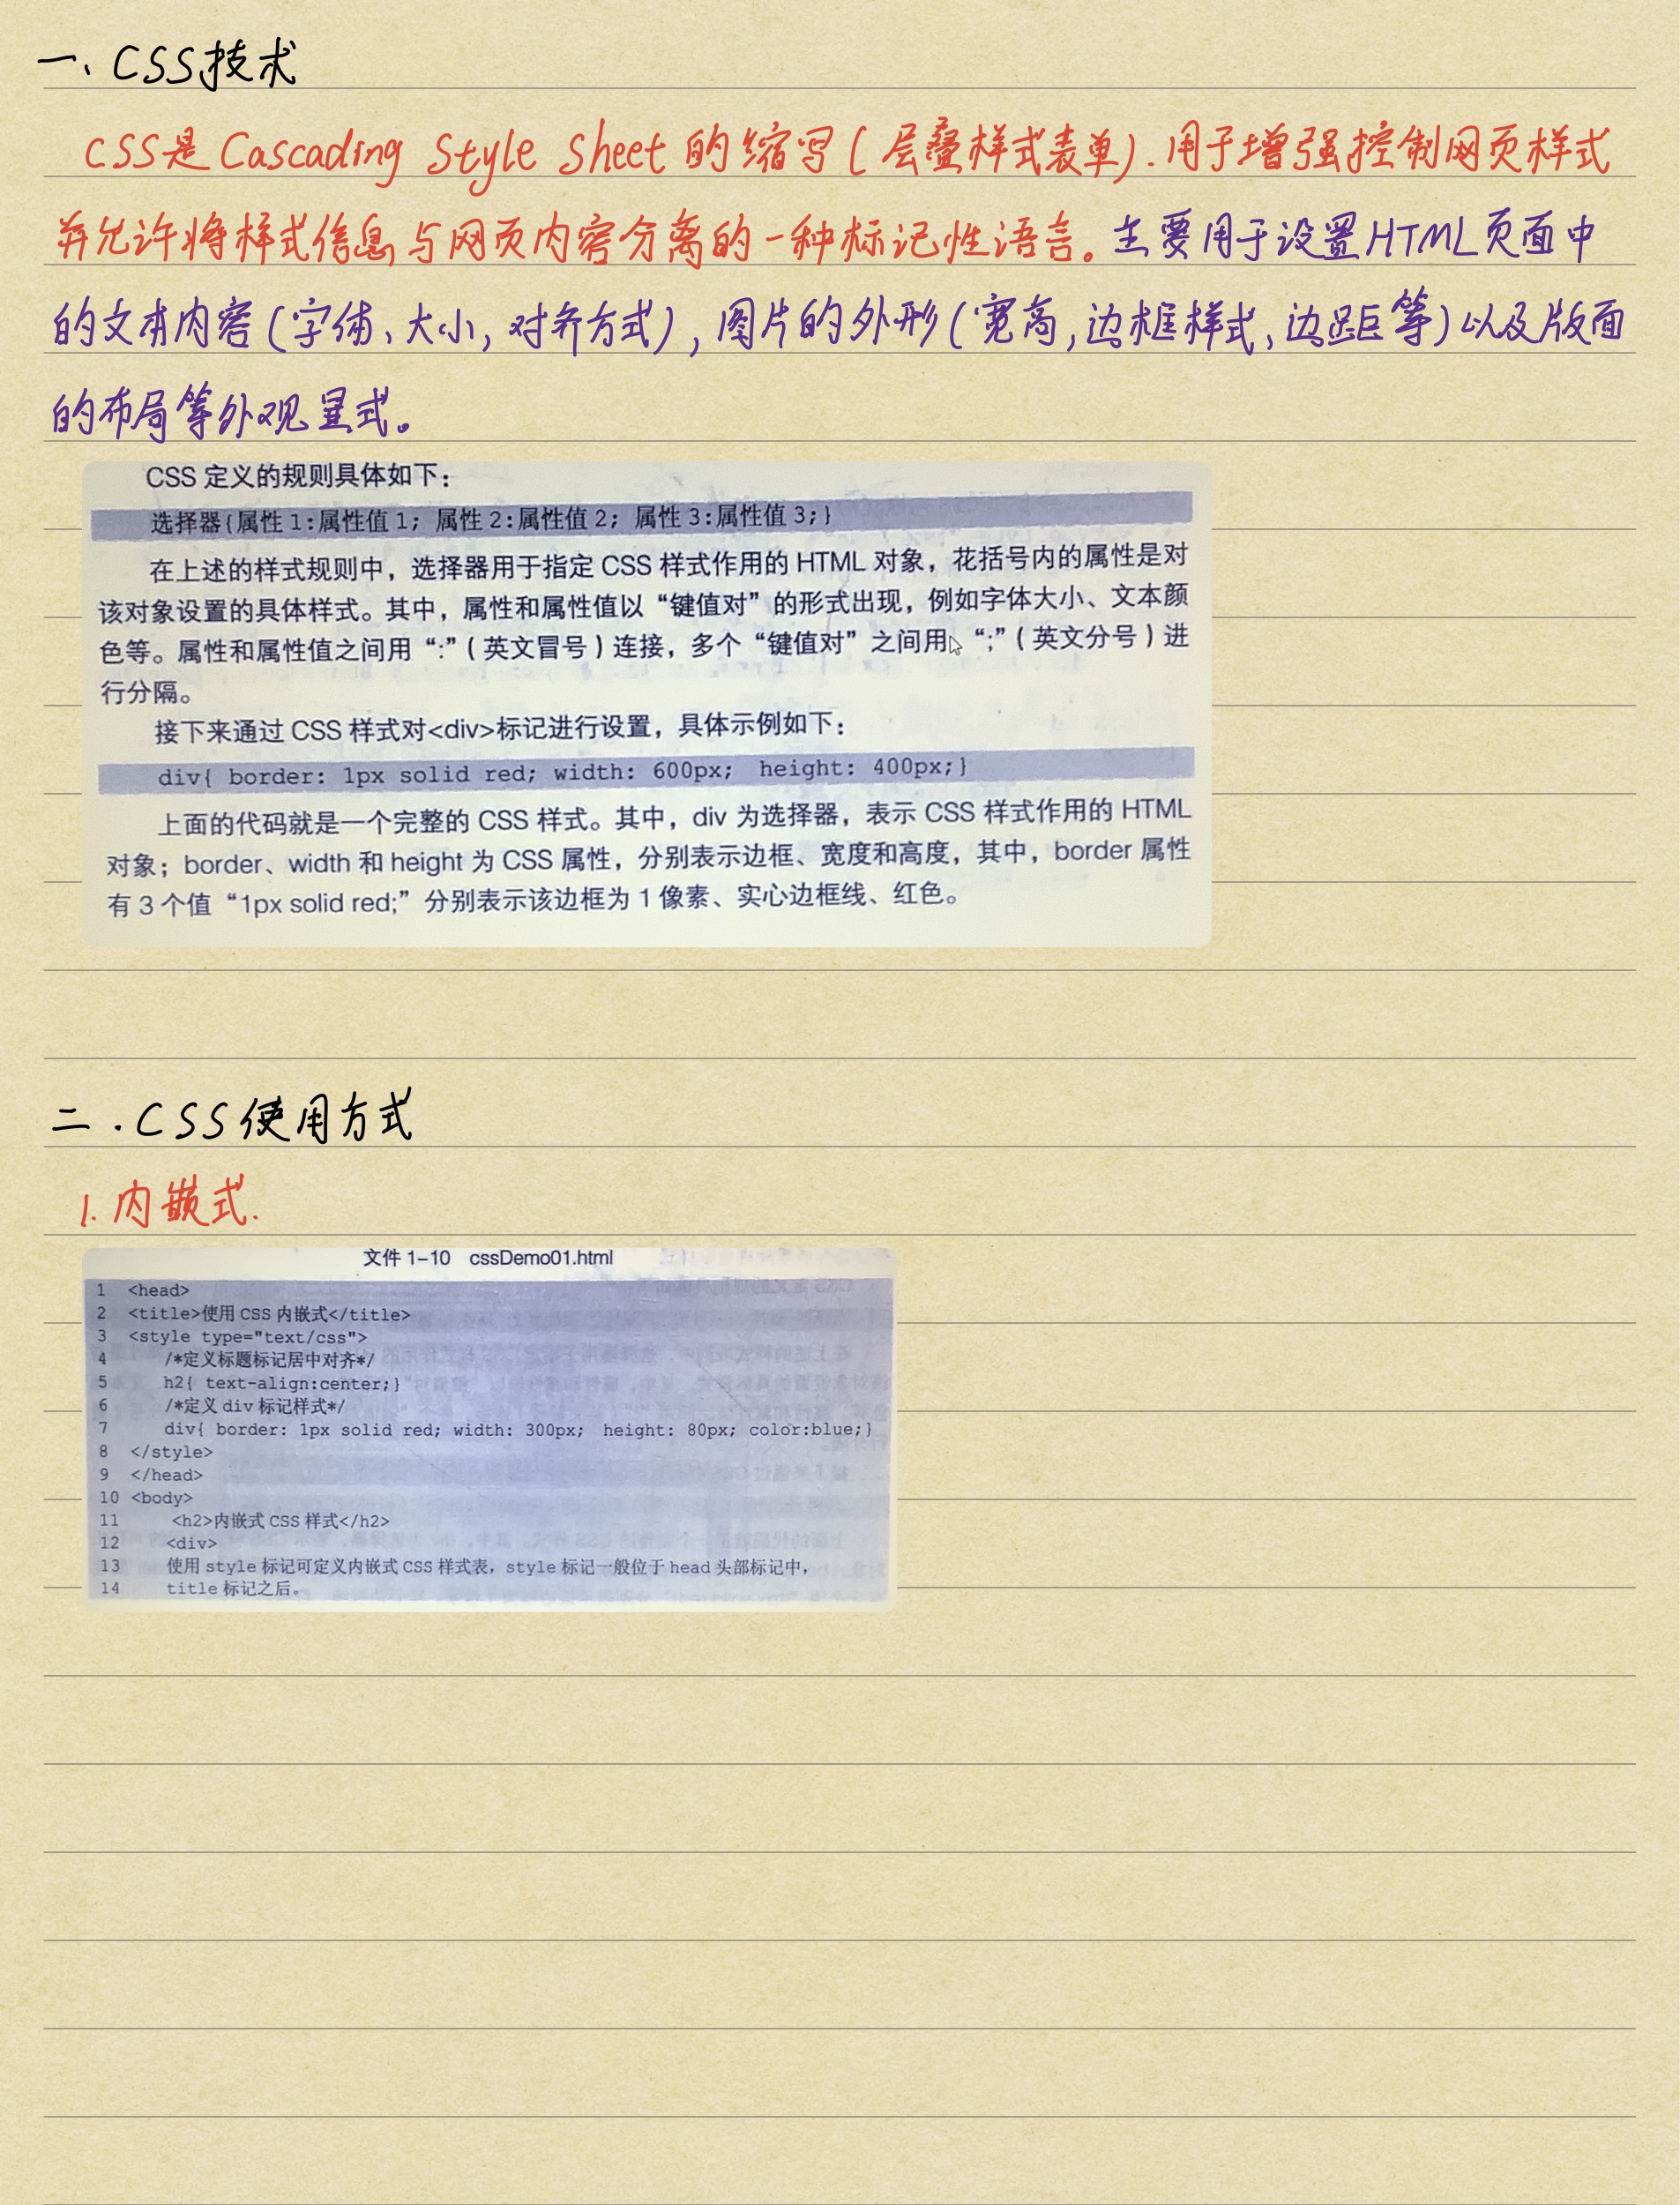 一、CSS技术
CSS是Cascading Style Sheet的缩写(层叠样式表单).用于增强控制网页样式
并允许将样式信息与网页内容分离的一种标记性语言。主要用于设置HTML页面中
的文本内容(字体、大小,对齐方式),图片的外形(宽高,边框样式、边距等)以及版面
的布局等外观显式。
CSS 定义的规则具体如下：
选择器{属性 1:属性值 1; 属性 2:属性值 2; 属性 3:属性值 3;}
在上述的样式规则中，选择器用于指定 CSS 样式作用的 HTML 对象，花括号内的属性是对
该对象设置的具体样式。其中，属性和属性值以“键值对”的形式出现，例如字体大小、文本颜
色等。属性和属性值之间用“:”（英文冒号）连接，多个“键值对”之间用“;”（英文分号）进
行分隔。
接下来通过 CSS 样式对<div>标记进行设置，具体示例如下：
div{ border: 1px solid red; width: 600px; height: 400px;}
上面的代码就是一个完整的 CSS 样式。其中，div 为选择器，表示 CSS 样式作用的 HTML
对象；border、width 和 height 为 CSS 属性，分别表示边框、宽度和高度，其中，border 属性
有 3 个值“1px solid red;”分别表示该边框为 1 像素、实心边框线、红色。
二.CSS使用方式
1.内嵌式.
文件 1-10 cssDemo01.html
1 <head>
2 <title>使用 CSS 内嵌式</title>
3 <style type="text/css">
4 /*定义标题标记居中对齐*/
5 h2{ text-align:center;}
6 /*定义 div 标记样式*/
7 div{ border: 1px solid red; width: 300px; height: 80px; color:blue;}
8 </style>
9 </head>
10 <body>
11 <h2>内嵌式 CSS 样式</h2>
12 <div>
13 使用 style 标记可定义内嵌式 CSS 样式表，style 标记一般位于 head 头部标记中，
14 title 标记之后。